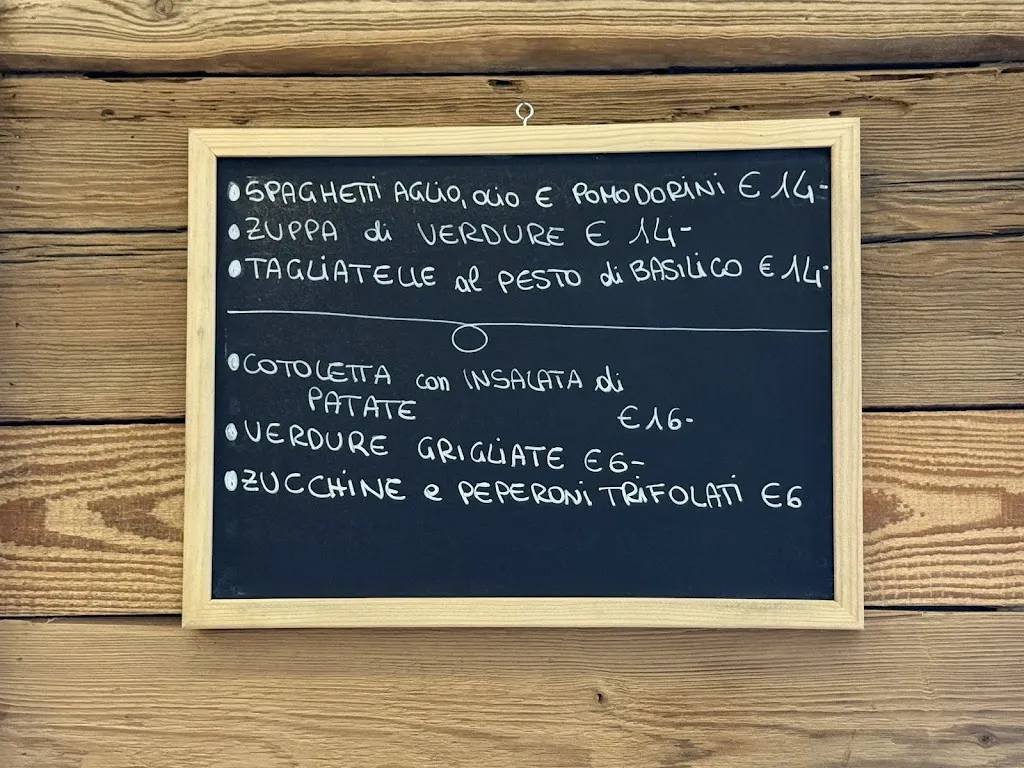 • SPAGHETTI AGLIO, OLIO E POMODORINI € 14-
• ZUPPA di VERDURE € 14-
• TAGLIATELLE al PESTO di BASILICO € 14-
• COTOLETTA con INSALATA di
PATATE €16-
• VERDURE GRIGLIATE €6-
• ZUCCHINE e PEPERONI TRIFOLATI €6